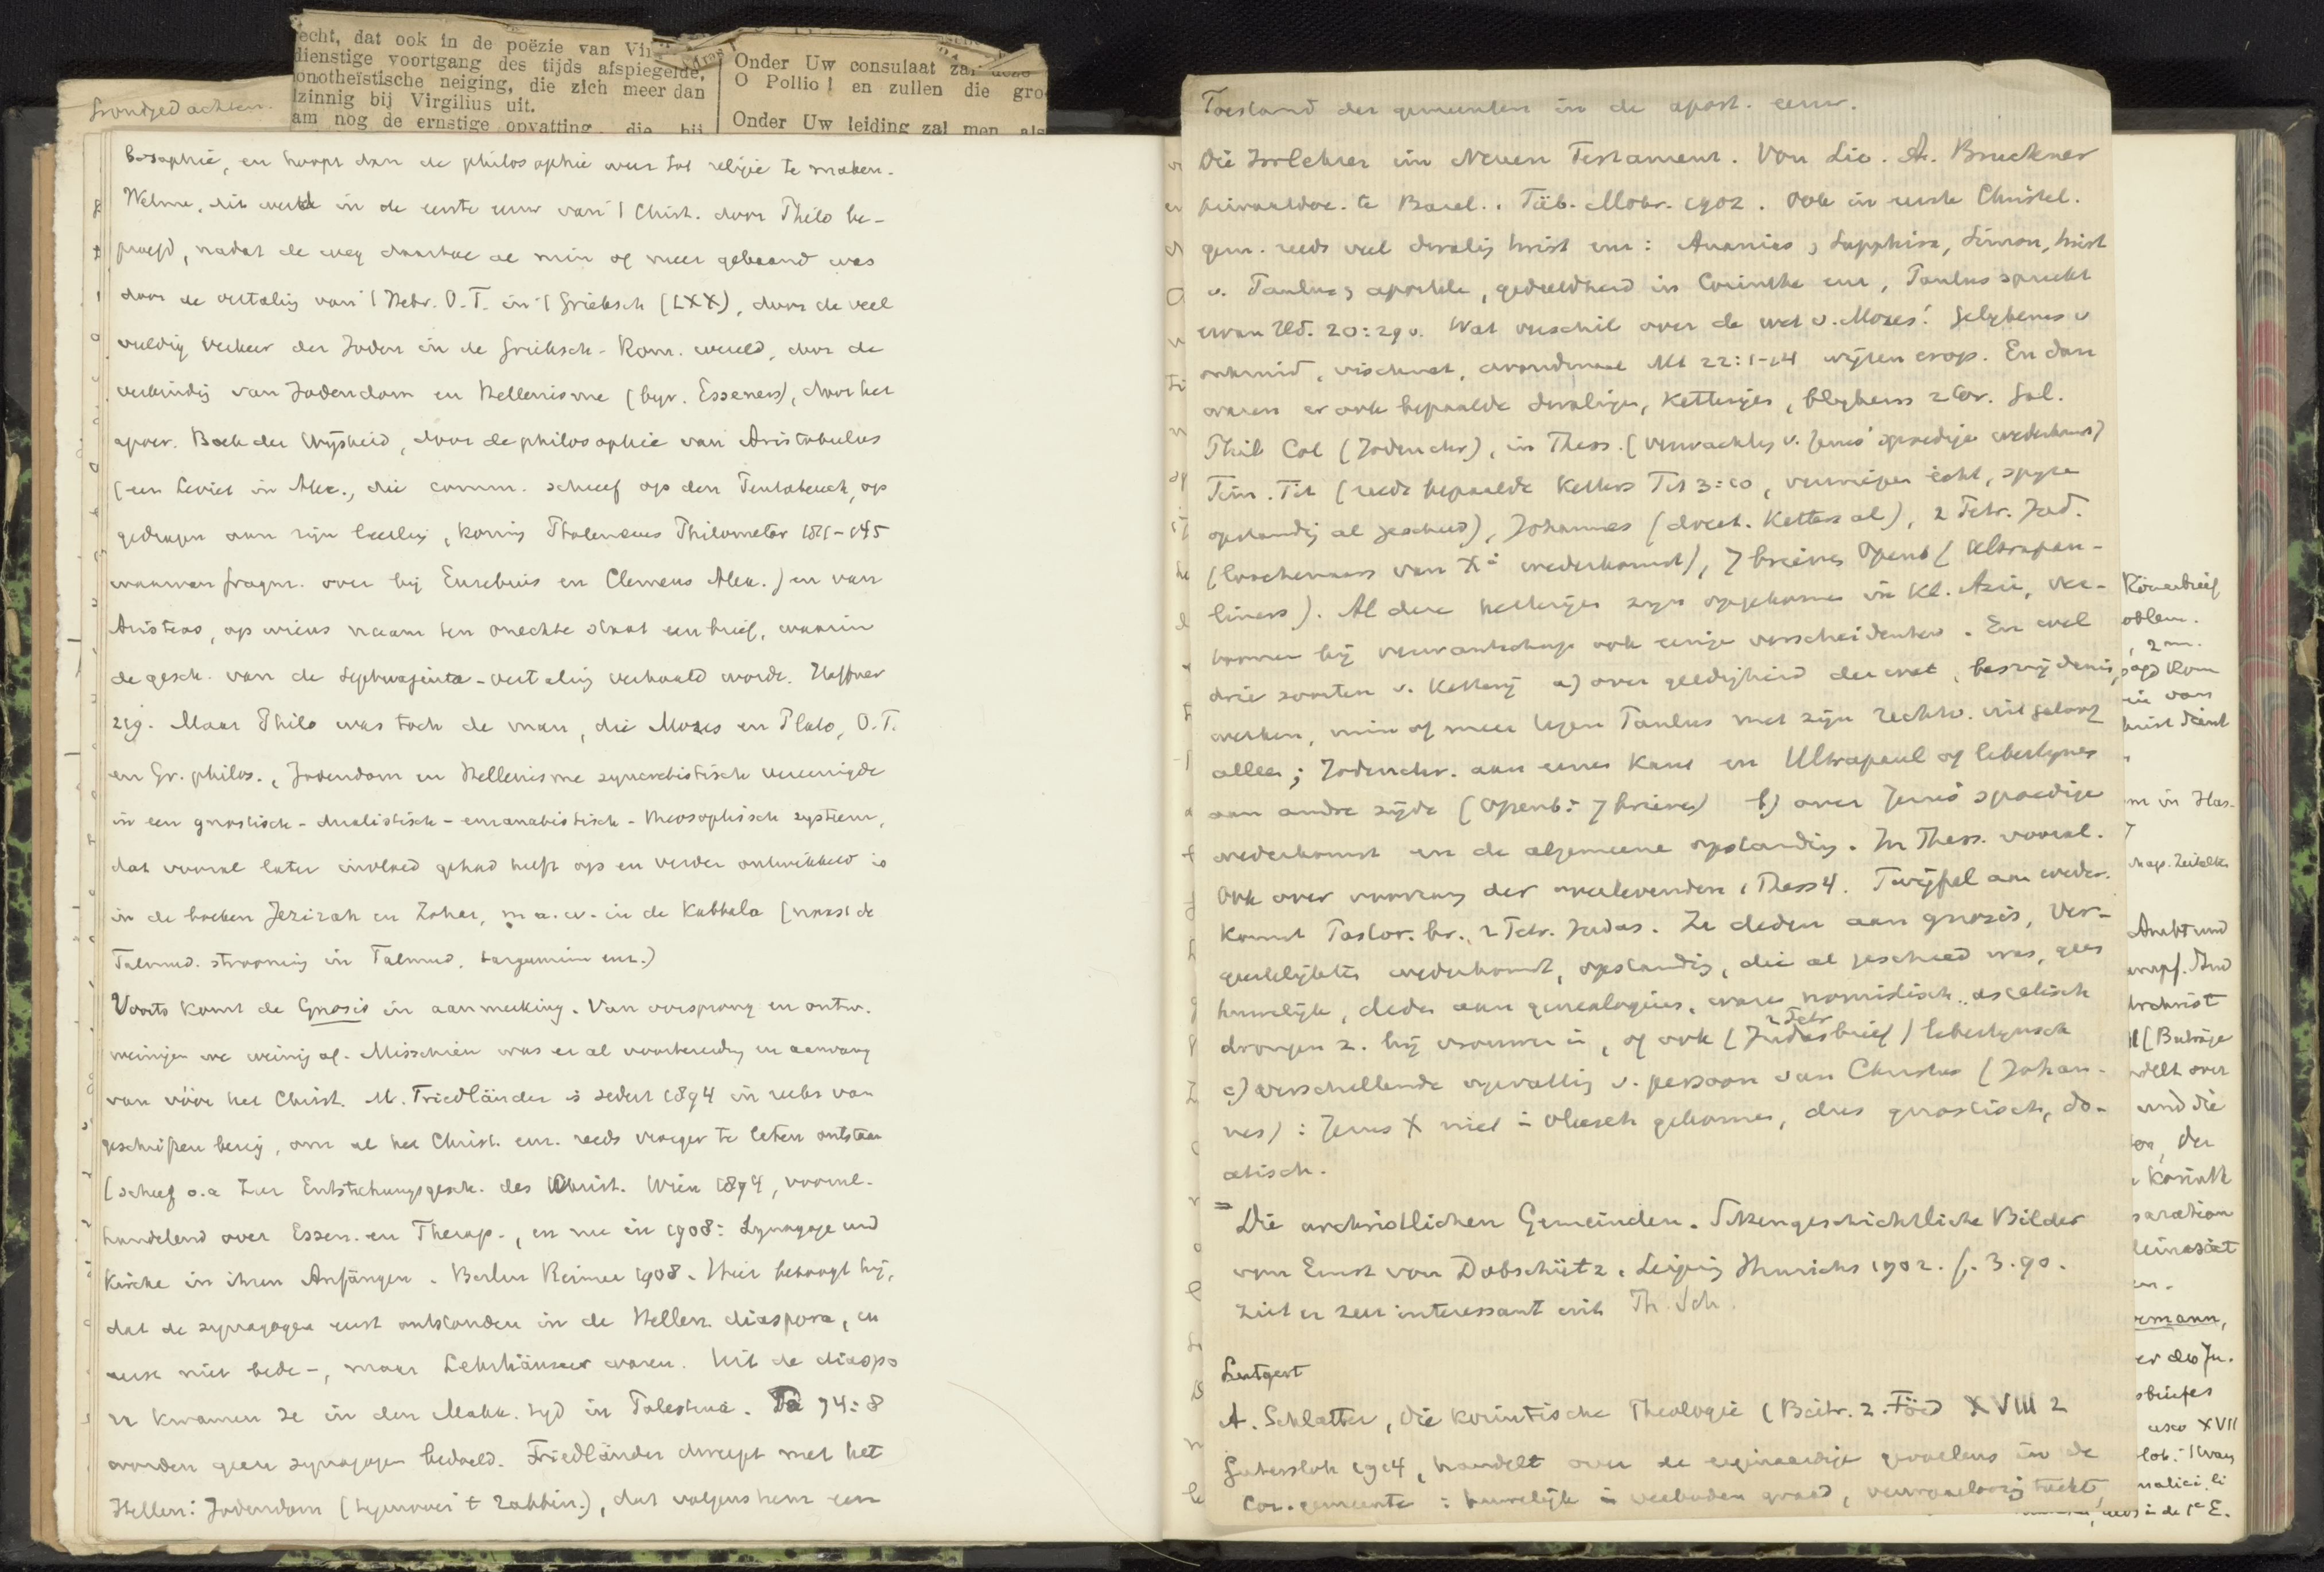 echt, dat ook in de poëzie van Vir
dienstige voortgang des tijds afspiegelde,
onotheïstische neiging, die zich meer dan
zinnig bij Virgilius uit.
am nog de ernstige opvatting, die bij
Onder Uw consulaat zal deze
O Pollio! en zullen die gro
Onder Uw leiding zal men als
Grondgedachten.
bosophie, en hoopt dan de philosophie weer tot religie te maken.
Welnu, dit werd in de eerste eeuw van 't Christ. door Philo be-
proefd, nadat de weg daartoe al min of meer gebaand was
door de vertaling van 't Hebr. O.T. in 't Grieksch (LXX), door de veel
vuldig verkeer der Joden in de Grieksch-Rom. wereld, door de
verbinding van Jodendom en Hellenisme (bijv. Esseners), door het
apocr. Boek der Wijsheid, door de philosophie van Aristobulus
(een Leviet in Alex., die comm. schreef op den Pentateuch, op
gedragen aan zijn leerling, koning Ptolemeus Philometor 181-145
waarvan fragm. over bij Eusebius en Clemens Alex.) en van
Aristeas, op wiens naam ten onechte staat een brief, waarin
de gesch. van de Septuaginta-vertaling verhaald wordt.
219. Maar Philo was toch de man, die Mozes en Plato, O.T.
en Gr. philos., Jodendom en Hellenisme syncretistisch vereenigde
in een gnostisch-dualistisch-emanatistisch-theosophisch systeem,
dat vooral later invloed gehad heeft op en verder ontwikkeld is
in de boeken Jezirah en Zohar, m.a.w. in de Kabbala (naast de
Talmud. strooming in Talmud, targumim enz.)
Voorts komt de Gnosis in aanmerking. Van oorsprong en ontw.
weinigen we weinig af. Misschien was er al voorbereiding en aanvang
van vóór het Christ. M. Friedländer is sedert 1894 in reeks van
geschriften bezig, om al het Christ. enz. reeds vroeger te laten ontstaan
(schreef o.a. Zur Entstehungsgesch. des Christ. Wien 1894, voornl.
handelend over Essen. en Therap., en nu in 1908: Synagoge und
Kirche in ihren Anfängen. Berlin Reimer 1908. Hier betoogt hij,
dat de synagogen eerst ontstonden in de Hellen. diaspora, en
eerst niet bede-, maar Lehrhäuser waren. Uit de diaspo
ra kwamen ze in den Makk. tijd in Palestina. Ps 74:8
worden geen synagogen bedoeld. Friedländer dweept met het
Hellen: Jodendom (tegenover 't rabbin.), dat volgens hem een
Toestand der gemeenten in de apost. eeuw.
Die Irrlehrer im Neuen Testament. Von Lic. A. Bruckner
privaatdoc. te Basel. Tüb. Mohr. 1902. Ook in eerste Christel.
gem. reeds veel dwaling twist enz: Ananias, Sapphira, Simon, twist
v. Paulus, apostele, gedeeldheid in Corinthe enz, Paulus spreekt
ervan Hd. 20:29 v. Wat verschil over de wet v. Mozes! Gelijkenis v
onkruid, vischnet, avondmaal Mt 22:1-14 wijzen erop. En dan
waren er ook bepaalde dwalingen, ketterijen, blijkens 2 Cor. Gal.
Phil Col (Jodenchr), in Thess. (verwachting v. Jezus' spoedige wederkomst)
Tim. Tit (reeds bepaalde Ketters Tit 3:10, verwierpen echt, spyze
opstanding al geschied), Johannes (doceet. Ketters al), 2 Petr. Jud.
(loochenaars van X: wederkomst), 7 brieven Openb (Ultrapau-
liners). Al deze ketterijen zijn opgekomen in Kl. Azië, ver-
toonen bij verwantschap ook eenige verscheidenheid. En wel
drie soorten v. Ketterij a) over geldigheid der wet, besnijdenis,
werken, min of meer tegen Paulus met zijn rechtv. uit geloof
alleen; Jodenchr. aan eenen kant en Ultrapaul of libertijnen
aan andre zijde (Openb: 7 brieven) b) over Jezus' spoedige
wederkomst en de algemeene opstanding. In Thess. vooral.
Ook over voorrang der overlevenden 1 Thess 4. Twijfel aan weder-
komst Pastor. br., 2 Petr. Judas. Ze deden aan gnosis, ver-
geestelijkten wederkomst, opstanding, die al geschied was, geen
huwelijk, deden aan genealogieën, waren nomistisch, ascetisch
drongen z. bij vrouwen in, of ook (Judasbrief) libertijnsch
2 Petr
c) verschillende opvatting v. persoon van Christus (Johan-
nes): Jezus X niet in vleesch gekomen, dus gnostisch, do-
cetisch.
= Die urchristlichen Gemeinden. Sittengeschichtliche Bilder
von Ernst von Dobschütz. Leipzig Hinrichs 1902. f. 3.90.
Ziet er zeer interessant uit Th. Sch.
Lutgert
A. Schlatter, die korintische Theologie (Beitr. z. Förd XVIII 2
Gutersloh 1914, handelt over de eigenaardige gevoelens in de
Cor. gemeente: huwelijk
Römerbrief
oblem.
, 2 m.
van
m in Has-
Urchrist
(Beiträge
delt over
und die
, der
Korinth
aration
ermann,
er des Ju.
sbriefes
XVII
in de 1e E.